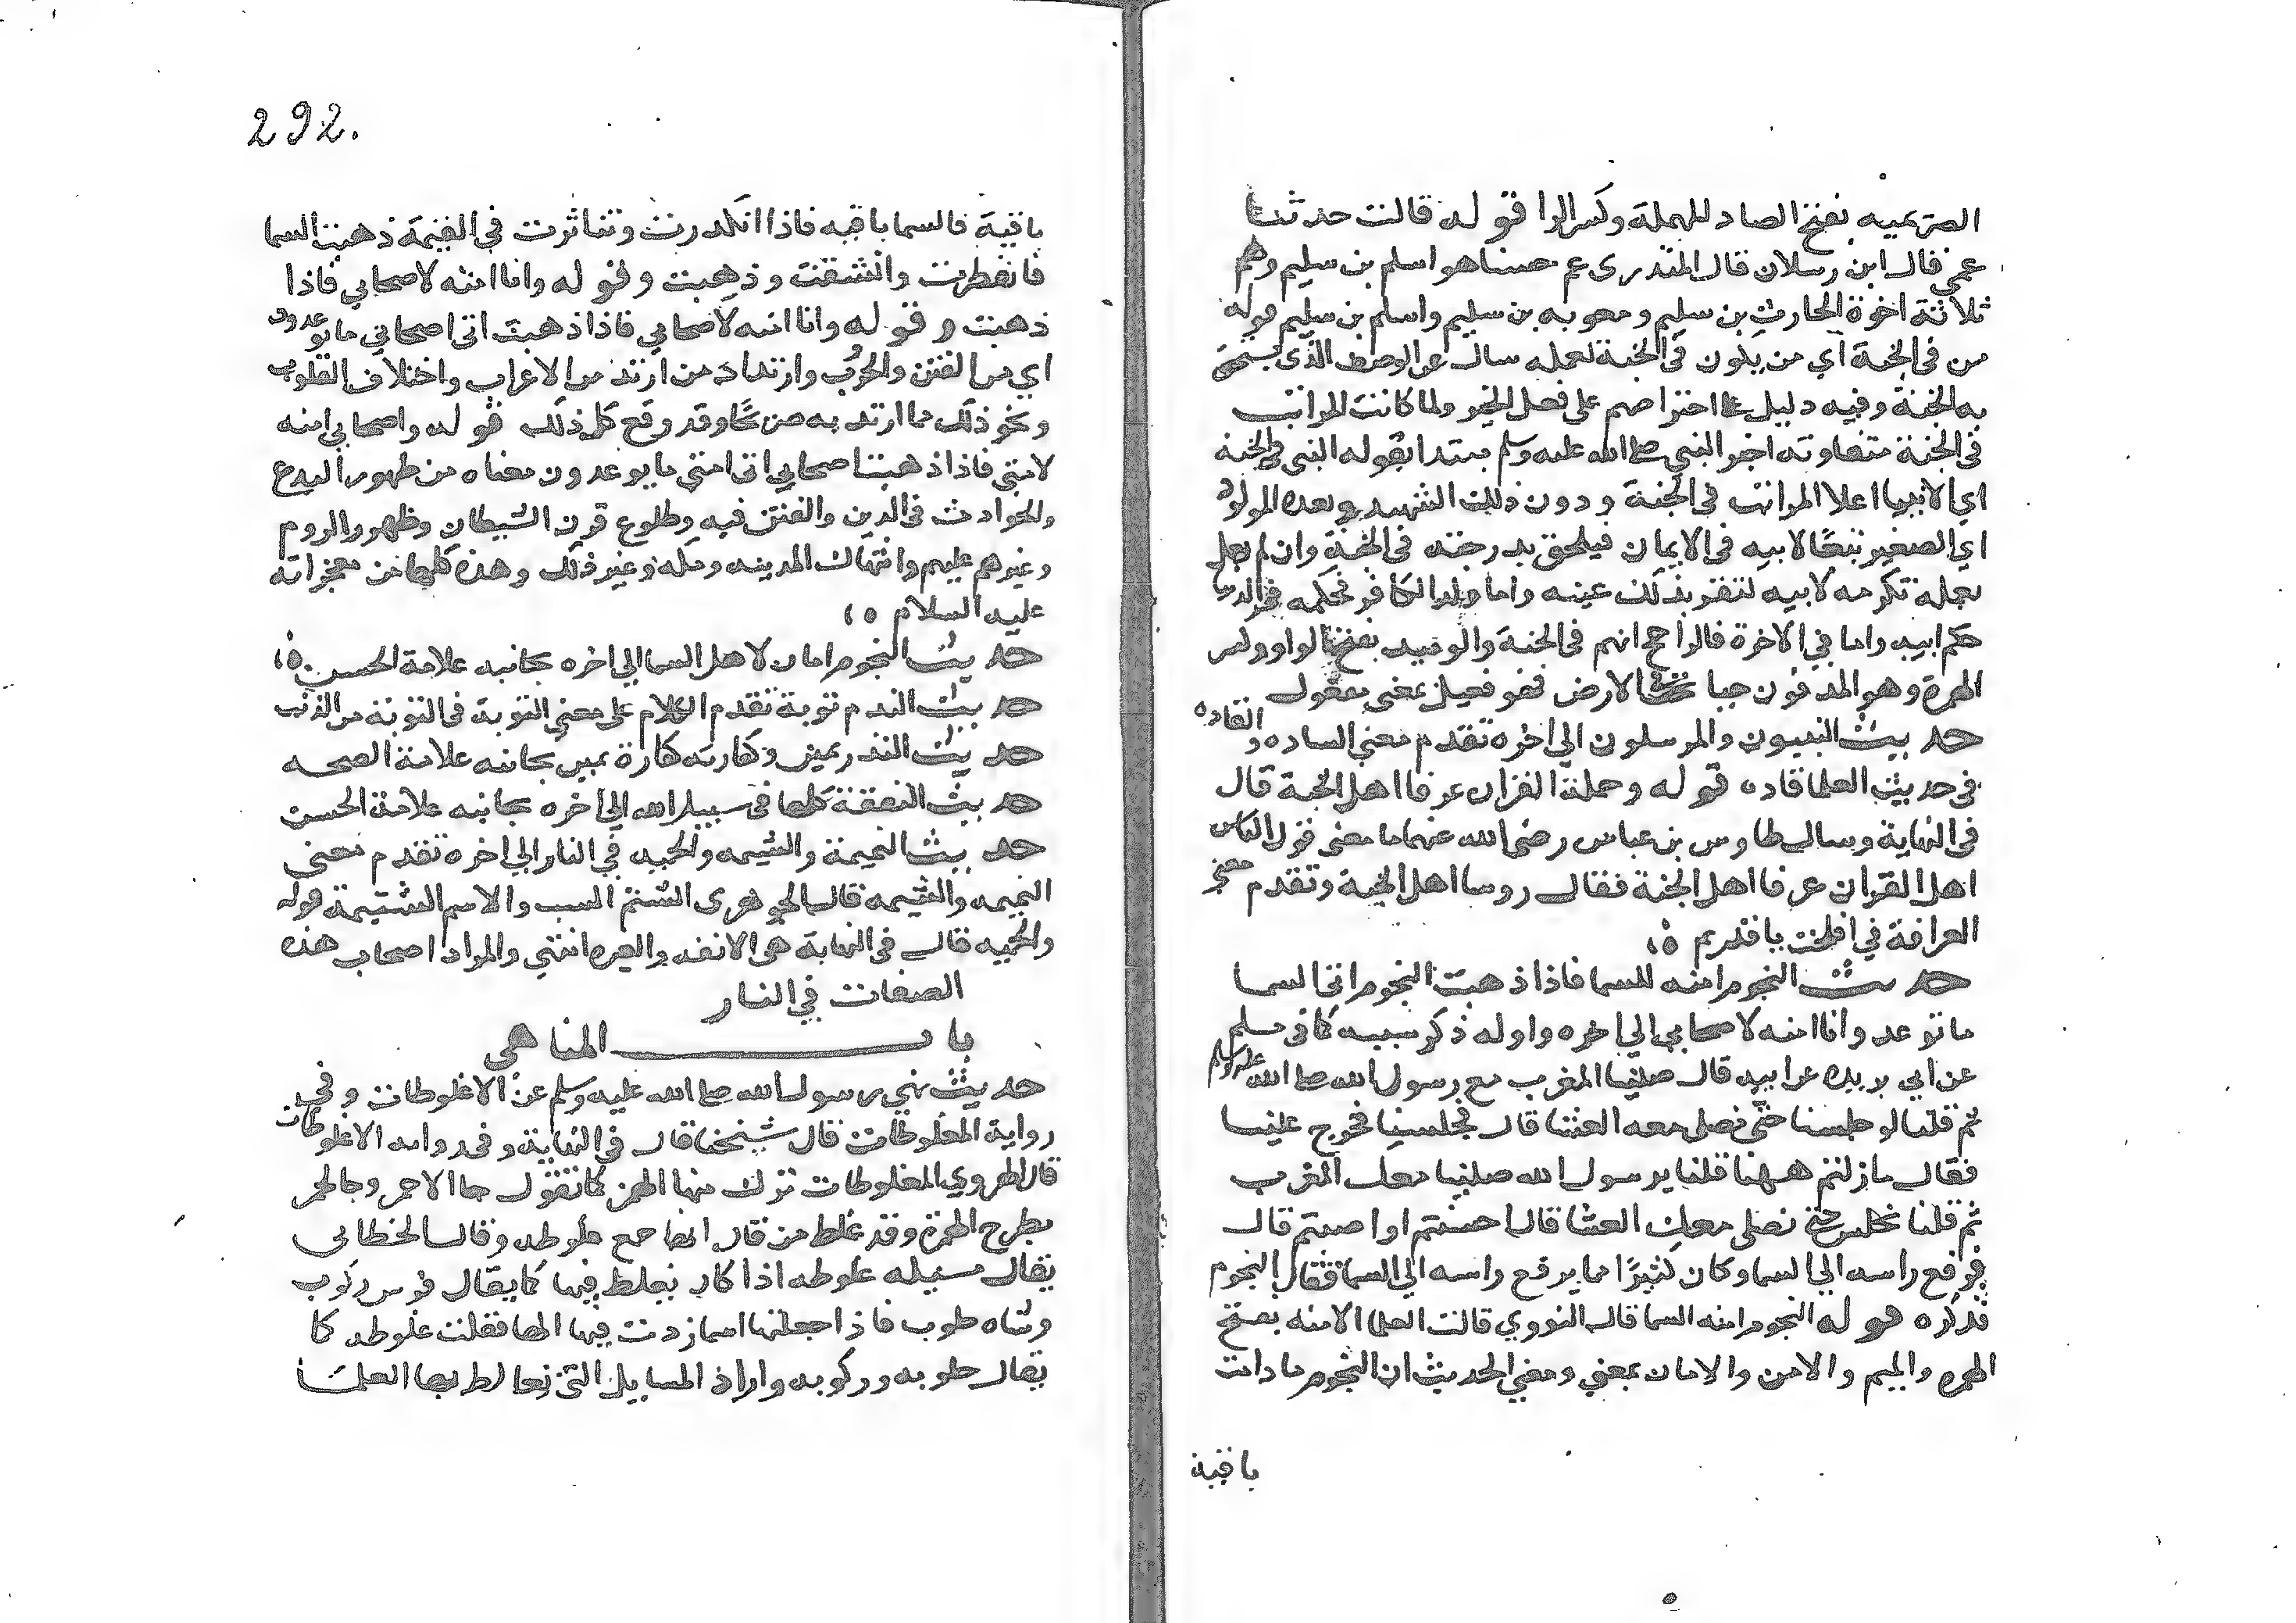 الصريمية بفتح الصاد المهملة وكسر الرا قوله قالت حدثنا
عمي قال ابن رسلان قال المنذري عم حسنا هو اسلم بن سليم وهم
ثلاثة اخوة الحارث بن سليم ومعويه بن سليم واسلم بن سليم قوله
من في الجنة اي من يكون في الجنة لعمله سال عن الوصف الذي يستحق
به الجنة وفيه دليل على حرصهم على فعل الخير ولما كانت المراتب
في الجنة متفاوته اخبر النبي صلى الله عليه وسلم مبتدا بقوله النبي في الجنة
اي الانبيا اعلا المراتب في الجنة ودون ذلك الشهيد وبعده المولود
اي الصغير تبعا لابيه في الايمان فيلحق بدرجته في الجنة وان لم يعمل
بعمله تكرمه لابيه لتقر بذلك عينه واما ولد الكافر فحكمه في الدنيا
حكم ابيه واما في الاخرة فالراجح انهم في الجنة والوئيد بفتح الواو وكسر
الهمزة وهو المدفون حيا تحت الارض فهو فعيل بمعنى مفعول
حديث النبيون والمرسلون الى اخره تقدم معنى الساده والقاده
في حديث العلما قاده قوله وحملة القران عرفا اهل الجنة قال
في النهاية وسال طاوس بن عباس رضى الله عنهما ما معنى قول الناس
اهل القران عرفا اهل الجنة فقال روسا اهل الجنة وتقدم معنى
العرافة في افلحت يا قديم ٥
حديث النجوم امنه للسما فاذا ذهبت النجوم اتى السما
ما توعد وانا امنه لاصحابي الى اخره واوله ذكر سببه كما في مسلم
عن ابي بريده عن ابيه قال صلينا المغرب مع رسول الله صلى الله عليه وسلم
ثم قلنا لو جلسنا حتى نصلى معه العشا قال فجلسنا فخرج علينا
فقال ما زلتم ههنا قلنا يرسول الله صلينا معك المغرب
ثم قلنا نجلس حتى نصلى معك العشا قال احسنتم او اصبتم قال
فرفع راسه الى السما وكان كثيرًا مما يرفع راسه الى السما فقال النجوم
فذكره قوله النجوم امنه السما قال النووي قالت العلما الامنه بفتح
الهمزه والميم والامن والامان بمعنى ومعنى الحديث ان النجوم ما دامت
باقية
292.
باقية فالسما باقيه فاذا انكدرت وتناثرت في القيمة ذهبت السما
فانفطرت وانشقت وذهبت وقوله وانا امنه لاصحابي فاذا
ذهبت وقوله وانا امنه لاصحابي فاذا ذهبت اتى اصحابي ما توعدون
اي من الفتن والحروب وارتداد من ارتد من الاعراب واختلاف القلوب
ونحو ذلك مما انذر به صريحًا وقد وقع كل ذلك قوله واصحابي امنه
لامتي فاذا ذهبت اصحابي اتى امتي ما يوعدون معناه من ظهور البدع
والحوادث في الدين والفتن فيه وطلوع قرن الشيطان وظهور الروم
وغيرهم عليهم وانتهاك المدينه ومكه وغير ذلك وهذه كلها من معجزاته
عليه السلام ٥
حديث النجوم امان لاهل السما الى اخره بجانبه علامة الحسن ٥
حديث الندم توبة تقدم الكلام على معنى التوبة في التوبة من الذنب
حديث النذر يمين وكفارته كفارة يمين بجانبه علامة الصحه
حديث النفقة كلها في سبيل الله الى اخره بجانبه علامة الحسن
حديث النميمة والشتيمه والحميه في النار الى اخره تقدم معنى
النميمه والشتيمه قال الجوهرى الشتم السب والاسم الشتيمة قوله
والحميه قال في النهاية هى الانفه والغيره انتهى والمراد اصحاب هذه
الصفات في النار
باب المناهى
حديث نهى رسول الله صلى الله عليه وسلم عن الاغلوطات وفي
رواية المغلوطات قال شيخنا قال في النهاية وفي رواية الاغلوطات
قال الهروي الغلوطات ترك منها الهمز كما تقول جا الاحمر وجا الحمر
بطرح الهمزة وقد غلط من قال انها جمع غلوطه وقال الخطابي
يقال مسيله غلوطه اذا كان يغلط فيها كما يقال فرس ركوب
وشاه حلوب فاذا جعلتها اسما زدت فيها الها فقلت غلوطه كما
يقال حلوبه وركوبه واراد المسايل التي يغالط بها العلما